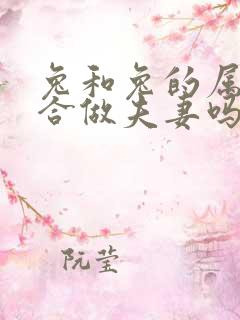 兔和兔的属
合做夫妻吗
阮莹